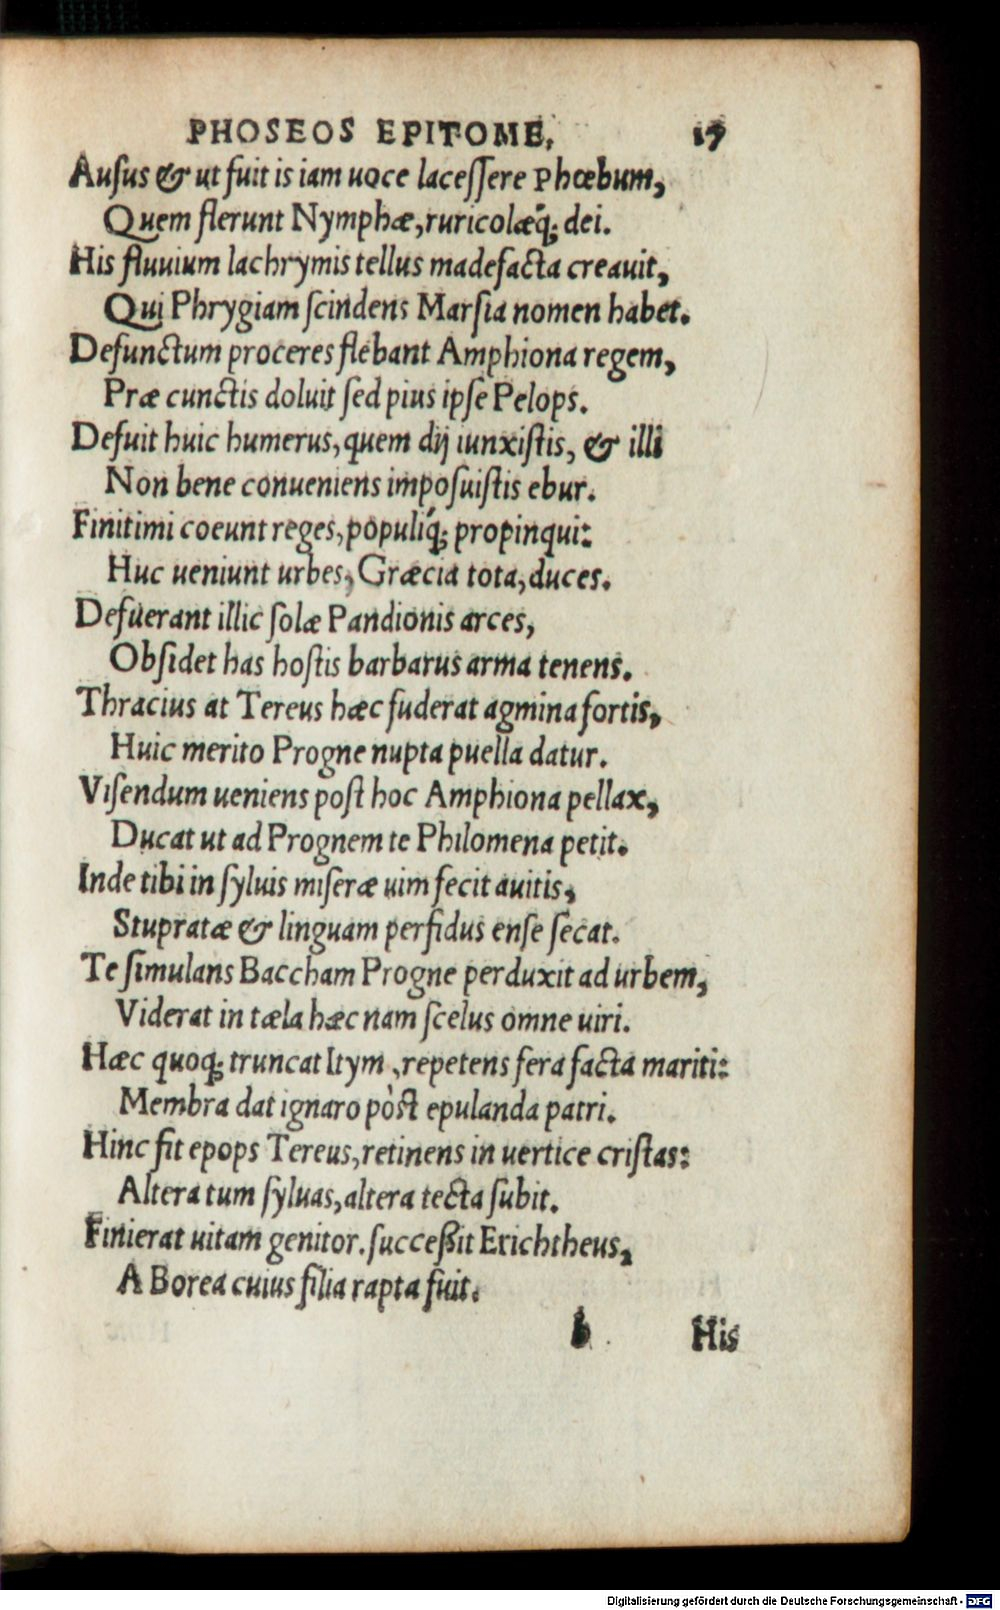 PHOSEOS EPITOME, 17
Ausus & ut fuit is iam uoce lacessere Phœbum,
Quem flerunt Nymphæ, ruricolæq́; dei.
His fluuium lachrymis tellus madefacta creauit,
Qui Phrygiam scindens Marsia nomen habet.
Defunctum proceres flebant Amphiona regem,
Præ cunctis doluit sed pius ipse Pelops.
Defuit huic humerus, quem dij iunxistis, & illi
Non bene conueniens imposuistis ebur.
Finitimi coeunt reges, populiq́; propinqui:
Huc ueniunt urbes, Græcia tota, duces.
Defuerant illic solæ Pandionis arces,
Obsidet has hostis barbarus arma tenens.
Thracius at Tereus hæc fuderat agmina fortis,
Huic merito Progne nupta puella datur.
Visendum ueniens post hoc Amphiona pellax,
Ducat ut ad Prognem te Philomena petit.
Inde tibi in syluis miseræ uim fecit auitis,
Stupratæ & linguam perfidus ense secat.
Te simulans Baccham Progne perduxit ad urbem,
Viderat in tæla hæc nam scelus omne uiri.
Hæc quoq; truncat Itym, repetens fera facta mariti:
Membra dat ignaro pòst epulanda patri.
Hinc fit epops Tereus, retinens in uertice cristas:
Altera tum syluas, altera tecta subit.
Finierat uitam genitor. successit Erichtheus,
A Borea cuius filia rapta fuit.
b His
Digitalisierung gefördert durch die Deutsche Forschungsgemeinschaft - DFG